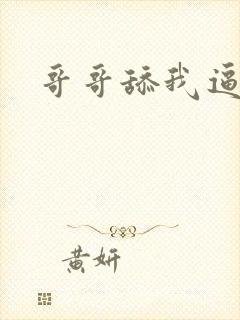 哥哥舔我逼
黄妍